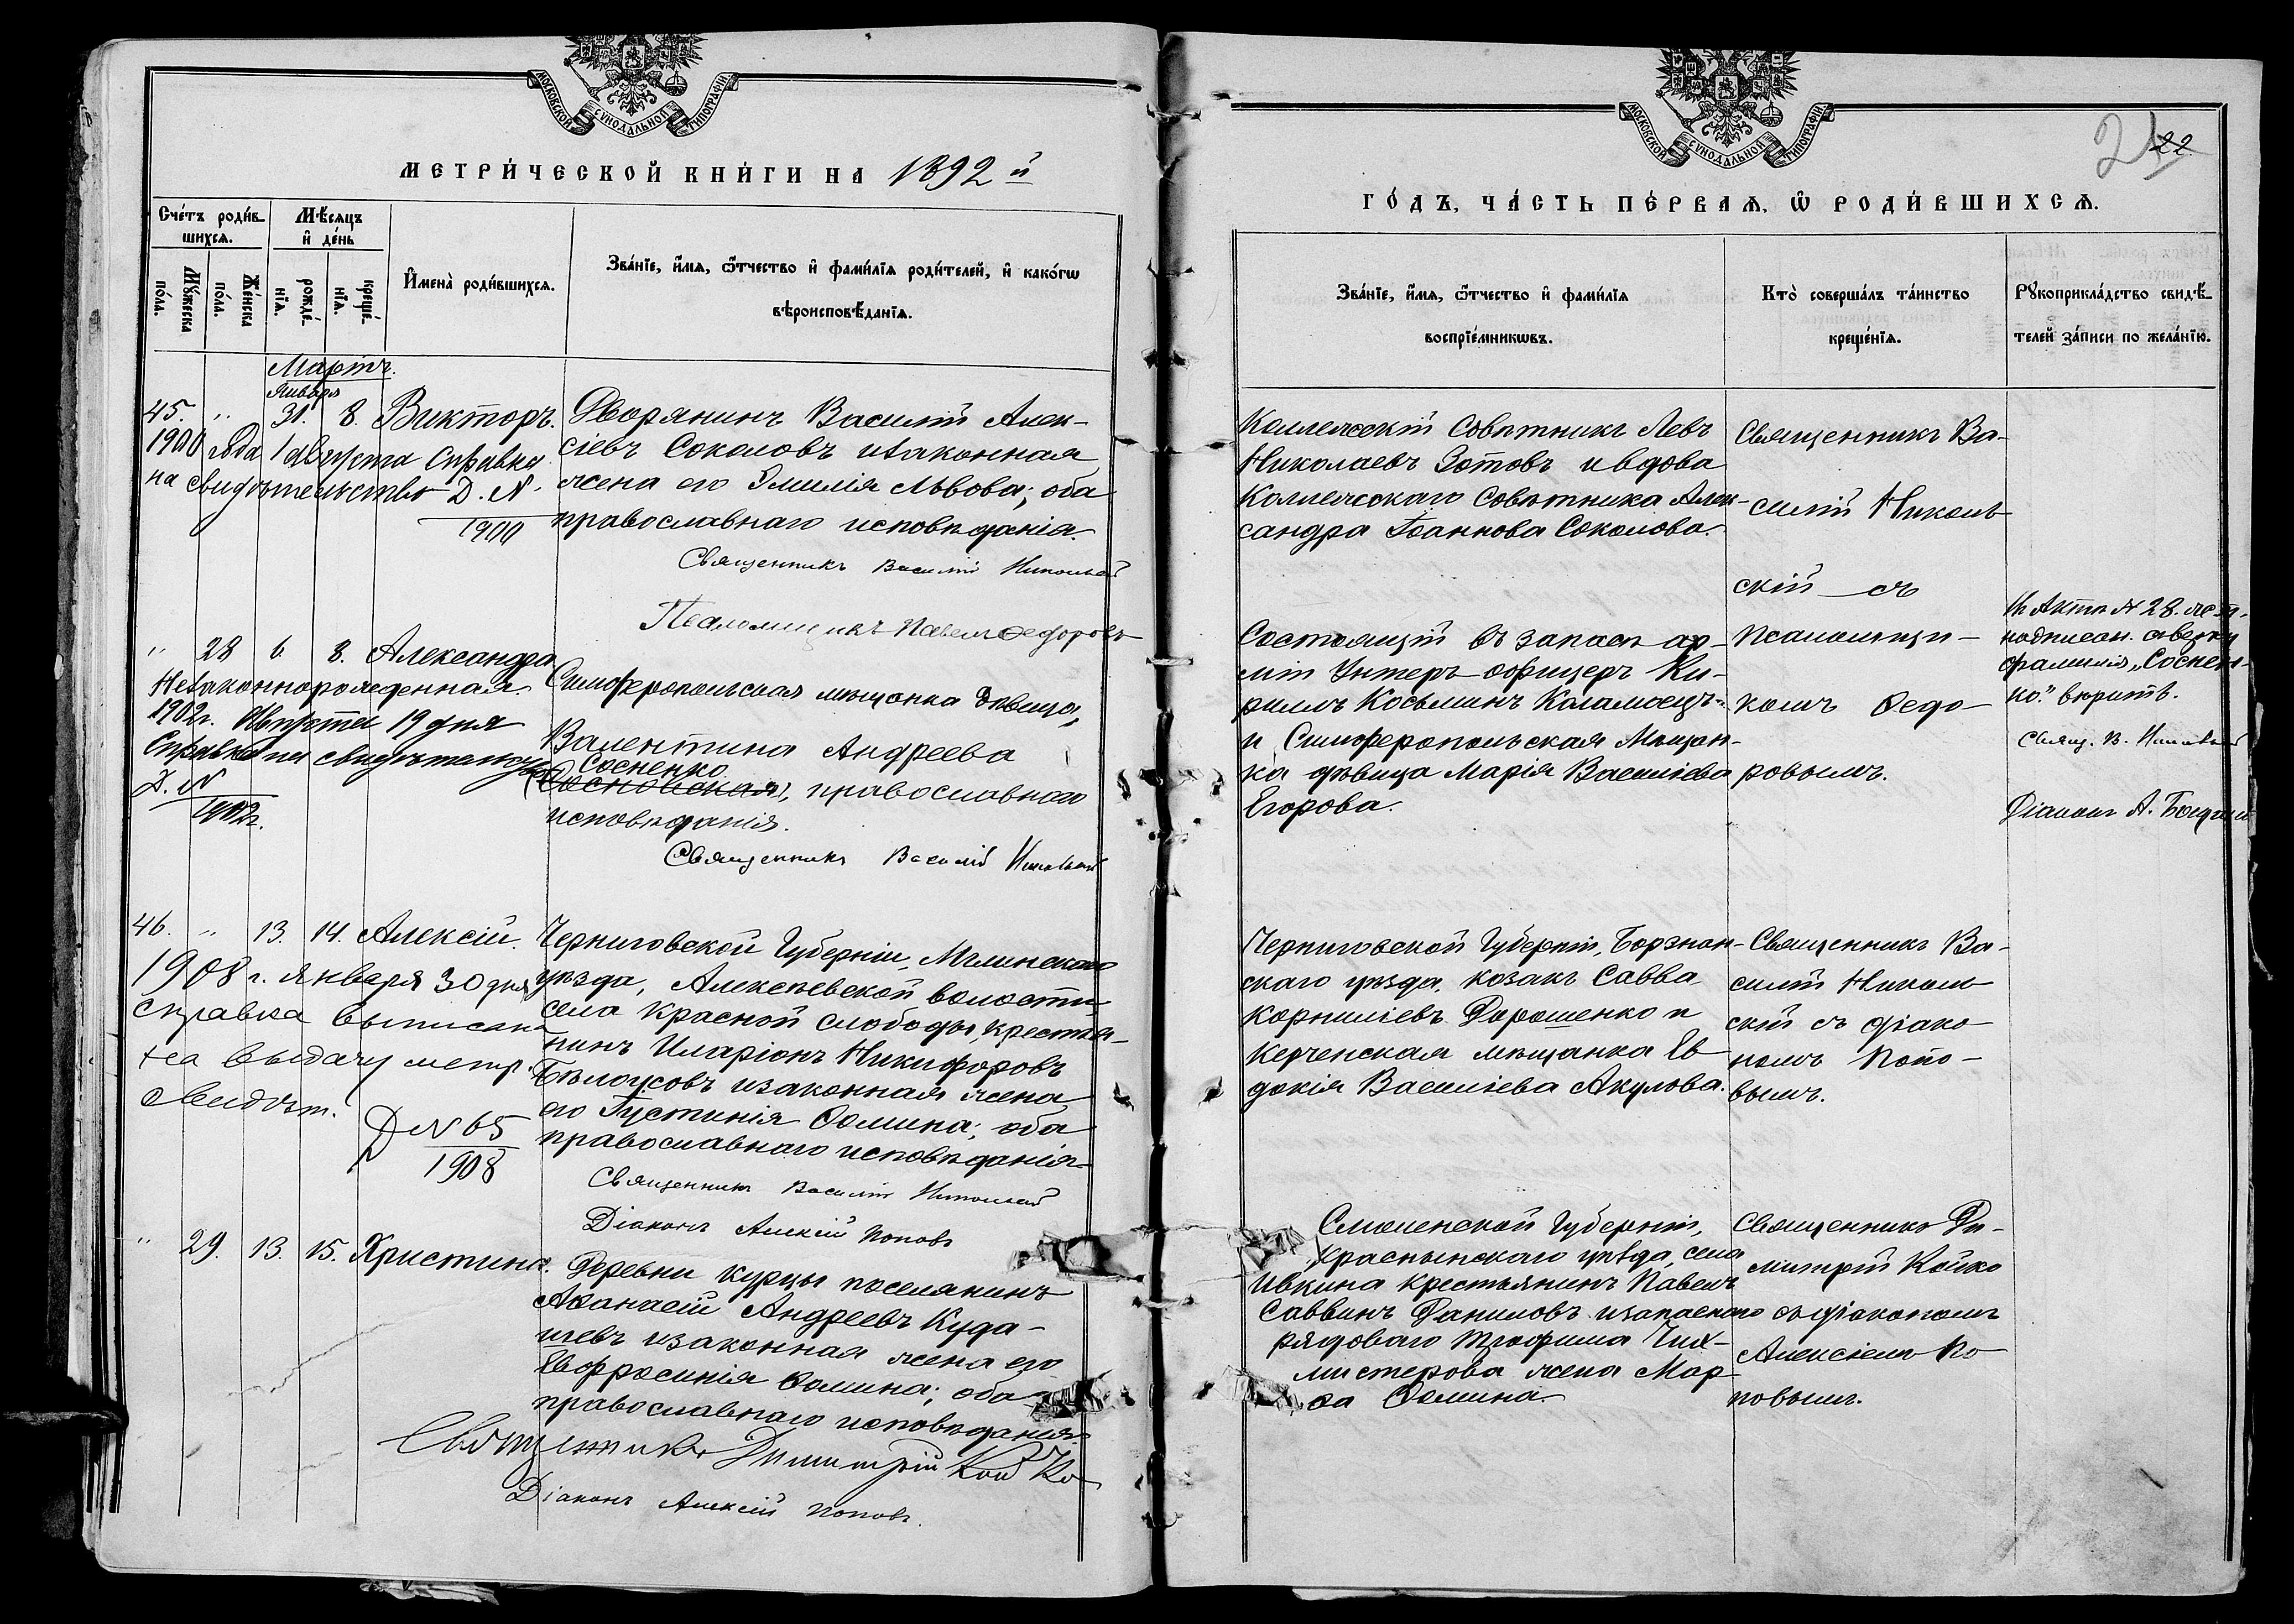 МОСКОВСКОЙ СУНОДАЛЬНОЙ ТИПОГРАФІИ
МЕТРИ́ЧЕСКОЙ КНИ́ГИ НА 1892 й
Сче́тъ роди́в-
шихся.
Мѣ́сяцъ
и҆ де́нь
Мꙋ́жеска
по́ла.
Же́нска
по́ла.
рожде́-
нїѧ.
креще́-
нїѧ.
И҆мена̀ роди́вшихсѧ.
Зва́нїе, и҆́мѧ, ѻ҆́тчество и҆ фами́лїѧ роди́телей, и҆ како́гѡ
вѣроисповѣ́данїѧ.
Мартъ.
Января
45. " 31. 8. Викторъ.
1900 года 1 Августа Справка
на свидѣтельство Д. №
1900
Дворянинъ Василій Алек-
сіевъ Соколовъ и законная
жена его Эмилія Львова; оба
православнаго исповѣданія.
Священникъ Василій Никольскій
Псаломщикъ Павелъ Ѳедоровъ
" 28 6. 8. Александра
Незаконнорожденная.
1902г. Августа 19 дня
Справка на свидѣтельство
Д. №
1902г.
Симферопольская мѣщанка дѣвица,
Валентина Андреева
Сосненко
(Сосновская), православнаго
исповѣданія.
Священникъ Василій Никольскій
46. " 13. 14. Алексій.
1908 г. Января 30 дня
справка выписана
на выдачу метр.
свидѣт.
Д № 65
1908
Черниговской Губерніи, Мглинскаго
уѣзда, Алексѣевской волости
села Красной слободы, крестья-
нинъ Иларіонъ Никифоровъ
Бѣлоусовъ и законная жена
его Іустинія Ѳомина; оба
православнаго исповѣданія.
Священникъ Василій Никольскій
Діаконъ Алексій Поповъ
" 29. 13. 15. Христина.
Деревни Курцы поселянинъ
Аѳанасій Андреевъ Куда-
шевъ и законная жена его
Евфросинія Ѳомина; оба
православнаго исповѣданія.
Священникъ Димитрій Койко
Діаконъ Алексій Поповъ.
МОСКОВСКОЙ СУНОДАЛЬНОЙ ТИПОГРАФІИ
22
ГО́ДЪ, ЧА́СТЬ ПЕ́РВАѦ, Ѡ҆ РОДИ́ВШИХСѦ.
Зва́нїе, и҆́мѧ, ѻ҆́тчество и҆ фами́лїѧ
воспрїе́мникѡвъ.
Кто̀ соверша́лъ та́инство
креще́нїѧ.
Рꙋкоприкла́дство свидѣ́-
телей за́писи по жела́нїю.
Коллежскій Совѣтникъ Левъ
Николаевъ Зотовъ и вдова
Коллежскаго Совѣтника Алек-
сандра Іоаннова Соколова.
Священникъ Ва-
силій Николь
скій съ
псаломщи-
комъ Ѳедо-
ровымъ.
Состоящій въ запасѣ ар-
міи Унтеръ-офицеръ Ки-
риллъ Косьминъ Каламоецъ
и Симферопольская Мѣщан-
ка дѣвица Марія Васильева
Егорова.
Въ Актѣ № 28.
надписан. сверху
фамилія „Соснен-
ко." вѣрить.
Свящ. В. Никольскій
Діаконъ А.
Черниговской Губерніи, Борзнан-
скаго уѣзда, козакъ Савва
Корниліевъ Дорошенко и
Керченская мѣщанка Ев-
докія Васильева Акулова.
Священникъ Ва-
силій Николь
скій съ діако-
номъ Попо-
вымъ.
Смоленской Губерніи,
Краснынскаго уѣзда, села
Ивкина крестьянинъ Павелъ
Саввинъ Даниловъ и запаснаго
рядоваго Трофима Тих-
мистерова жена Мар-
ѳа Ѳомина.
Священникъ Ди-
митрій Койко
съ діакономъ
Алексіемъ По
повымъ.